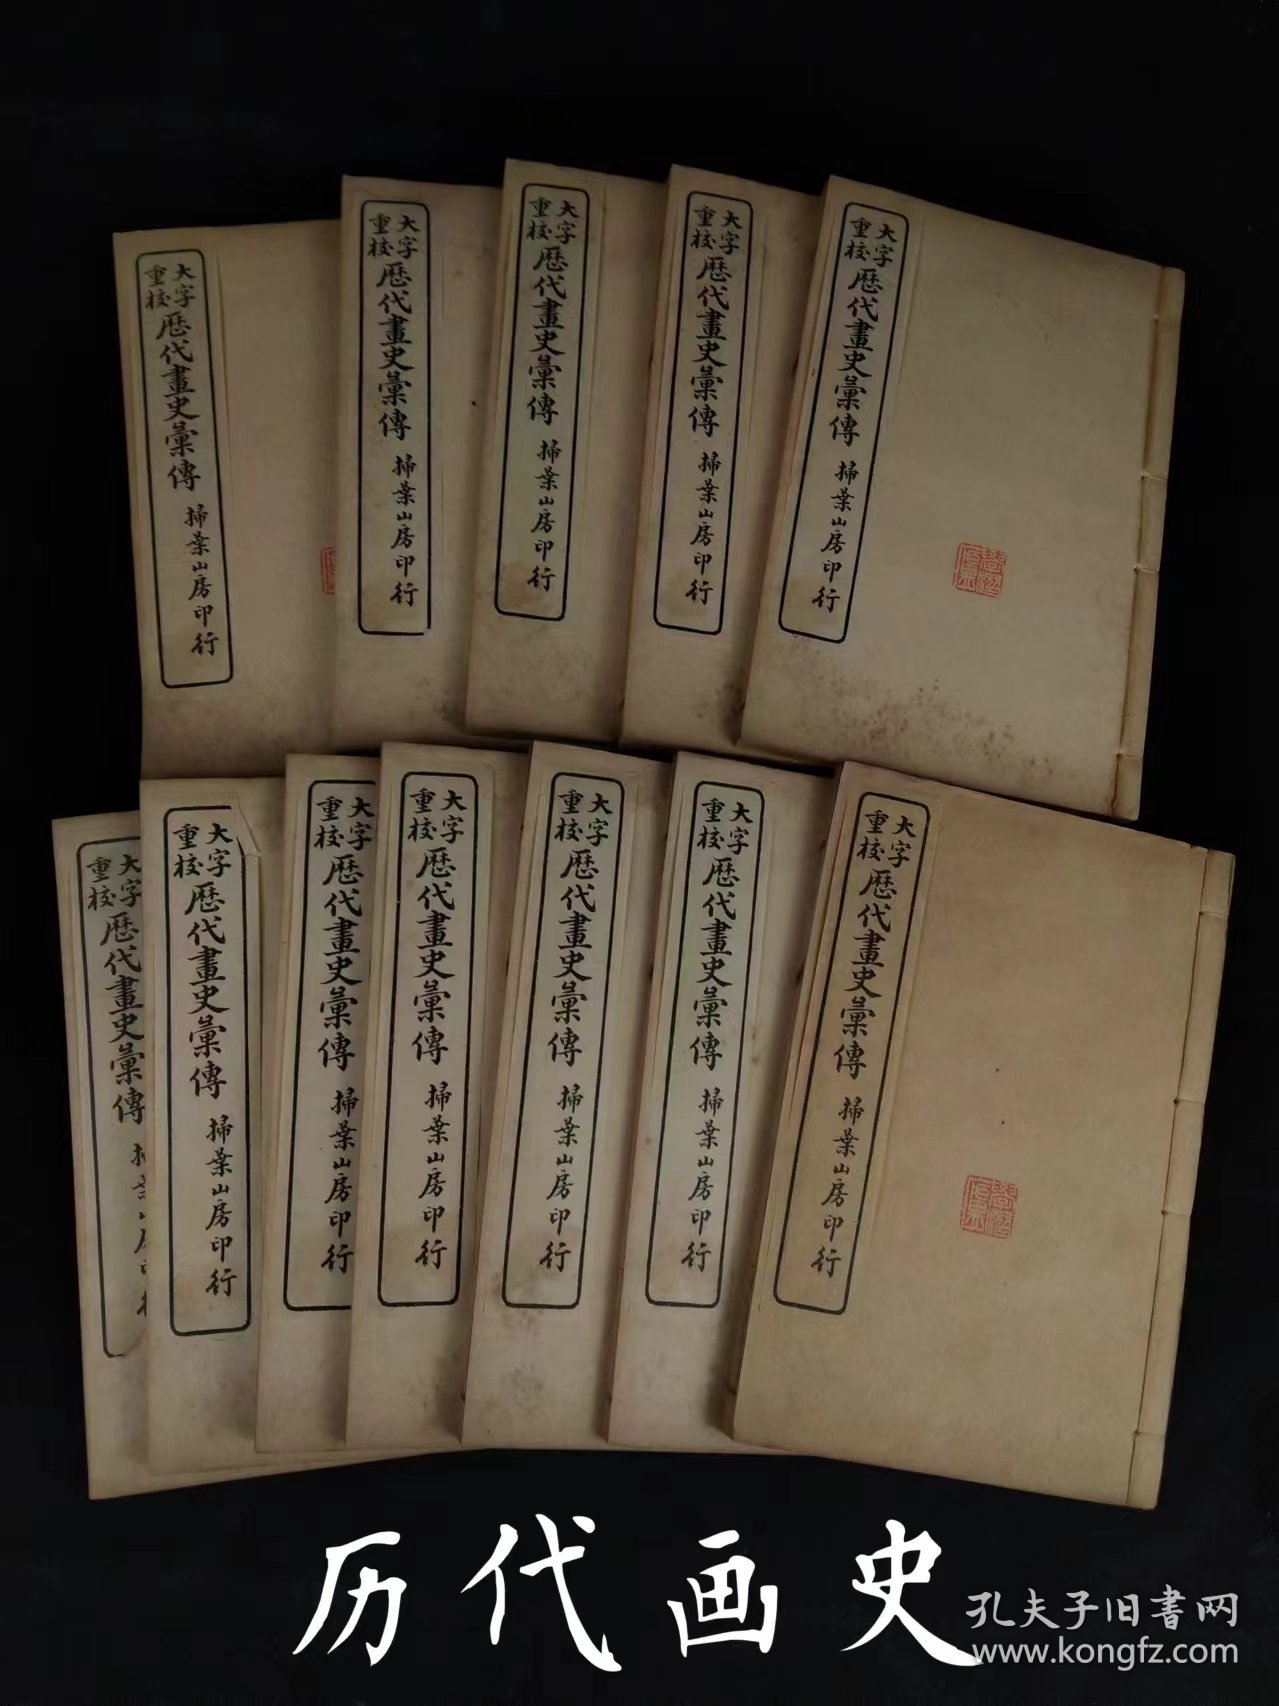 大字重校歷代畫史彙傳 掃葉山房印行
大字重校歷代畫史彙傳 掃葉山房印行
大字重校歷代畫史彙傳 掃葉山房印行
大字重校歷代畫史彙傳 掃葉山房印行
大字重校歷代畫史彙傳 掃葉山房印行
大字重校歷代畫史彙傳 掃葉山房印行
大字重校歷代畫史彙傳 掃葉山房印行
大字重校歷代畫史彙傳 掃葉山房印行
大字重校歷代畫史彙傳 掃葉山房印行
大字重校歷代畫史彙傳 掃葉山房印行
大字重校歷代畫史彙傳 掃葉山房印行
大字重校歷代畫史彙傳 掃葉山房印行
历代画史
孔夫子旧书网
www.kongfz.com